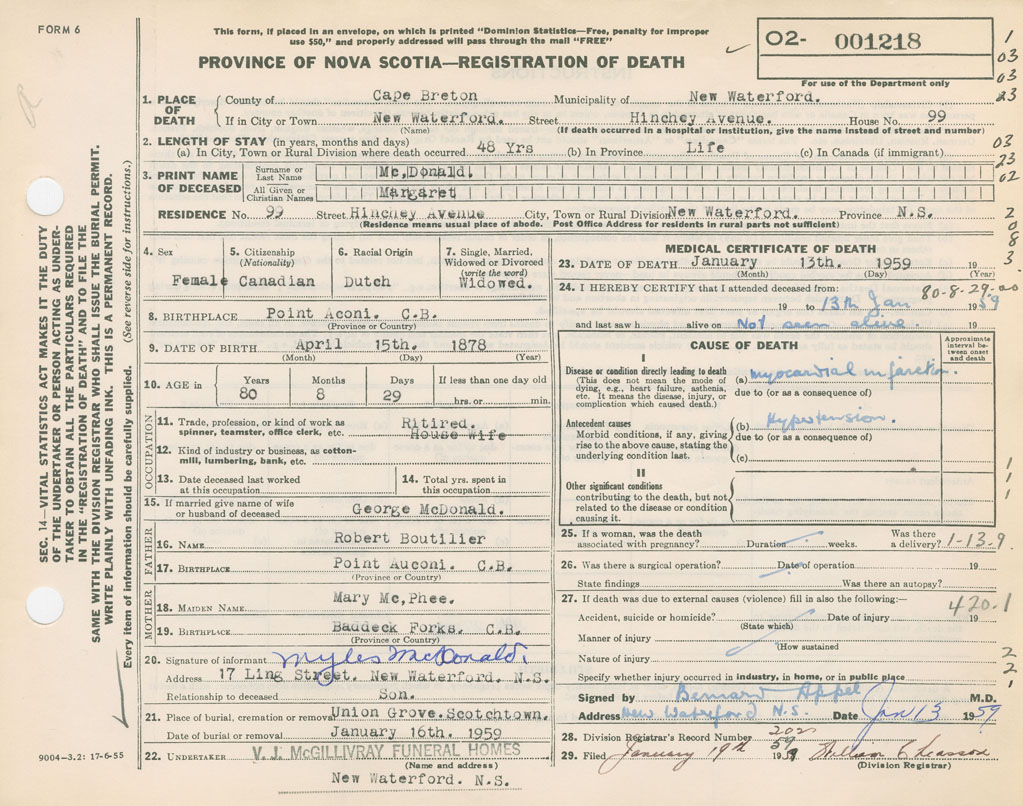 FORM 6
This form, if placed in an envelope, on which is printed "Dominion Statistics—Free, penalty for improper
use $50," and properly addressed will pass through the mail "FREE"
O2- 001218
For use of the Department only
PROVINCE OF NOVA SCOTIA—REGISTRATION OF DEATH
1
03
03
23
1. PLACE OF DEATH County of Cape Breton Municipality of New Waterford.
If in City or Town New Waterford. Street Hinchey Avenue. House No. 99
(Name) (If death occurred in a hospital or institution, give the name instead of street and number)
2. LENGTH OF STAY (in years, months and days)
(a) In City, Town or Rural Division where death occurred 48 Yrs (b) In Province Life (c) In Canada (if immigrant)
03
23
02
3. PRINT NAME OF DECEASED Surname or Last Name Mc,Donald.
All Given or Christian Names Margaret
RESIDENCE No. 99 Street Hinchey Avenue City, Town or Rural Division New Waterford. Province N.S.
(Residence means usual place of abode. Post Office Address for residents in rural parts not sufficient)
2
0
8
3
4. Sex Female
5. Citizenship (Nationality) Canadian
6. Racial Origin Dutch
7. Single, Married, Widowed or Divorced (write the word) Widowed.
8. BIRTHPLACE Point Aconi. C.B.
(Province or Country)
9. DATE OF BIRTH April 15th. 1878
(Month) (Day) (Year)
10. AGE in Years Months Days If less than one day old
80 8 29 hrs. or min.
OCCUPATION
11. Trade, profession, or kind of work as spinner, teamster, office clerk, etc. Ritired. House Wife
12. Kind of industry or business, as cotton-mill, lumbering, bank, etc.
13. Date deceased last worked at this occupation
14. Total yrs. spent in this occupation
15. If married give name of wife or husband of deceased George McDonald.
FATHER
16. NAME Robert Boutilier
17. BIRTHPLACE Point Auconi. C.B.
(Province or Country)
MOTHER
18. MAIDEN NAME Mary Mc,Phee.
19. BIRTHPLACE Baddeck Forks. C.B.
(Province or Country)
20. Signature of informant Myles McDonald.
Address 17 Ling Street. New Waterford. N.S.
Relationship to deceased Son.
21. Place of burial, cremation or removal Union Grove.Scotchtown.
Date of burial or removal January 16th. 1959
22. UNDERTAKER V. J. McGILLIVRAY FUNERAL HOMES
(Name and address)
New Waterford. N.S.
MEDICAL CERTIFICATE OF DEATH
23. DATE OF DEATH January 13th. 1959 19
(Month) (Day) (Year)
24. I HEREBY CERTIFY that I attended deceased from: 80-8-29-00
19 to 13th Jan 1959
and last saw h alive on Not seen alive. 19
CAUSE OF DEATH
Approximate interval between onset and death
I
Disease or condition directly leading to death
(This does not mean the mode of dying, e.g., heart failure, asthenia, etc. It means the disease, injury, or complication which caused death.)
(a) myocardial infarction.
due to (or as a consequence of)
Antecedent causes
Morbid conditions, if any, giving rise to the above cause, stating the underlying condition last.
(b) Hypertension.
due to (or as a consequence of)
(c)
II
Other significant conditions
contributing to the death, but not related to the disease or condition causing it.
1
1
1
25. If a woman, was the death associated with pregnancy? Duration weeks. Was there a delivery? 1-13-9
26. Was there a surgical operation? Date of operation 19
State findings Was there an autopsy?
27. If death was due to external causes (violence) fill in also the following:— 420.1
Accident, suicide or homicide? Date of injury 19
(State which)
Manner of injury
(How sustained
Nature of injury
Specify whether injury occurred in industry, in home, or in public place
2
2
1
Signed by Bernard Appel M.D.
Address New Waterford N.S. Date Jan 13 1959
28. Division Registrar's Record Number 202
59
29. Filed January 19th 1959
(Division Registrar)
SEC. 14—VITAL STATISTICS ACT MAKES IT THE DUTY
OF THE UNDERTAKER OR PERSON ACTING AS UNDER-
TAKER TO OBTAIN ALL THE PARTICULARS REQUIRED
IN THE "REGISTRATION OF DEATH" AND TO FILE THE
SAME WITH THE DIVISION REGISTRAR WHO SHALL ISSUE THE BURIAL PERMIT.
WRITE PLAINLY WITH UNFADING INK. THIS IS A PERMANENT RECORD.
Every item of information should be carefully supplied. (See reverse side for instructions.)
9004—3.2: 17-6-55